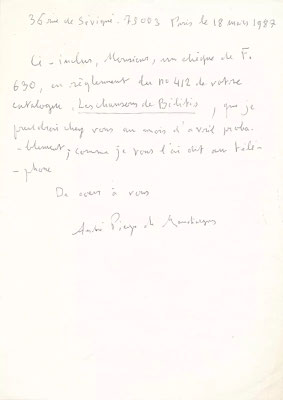 36 rue de Sévigné. 75003 Paris le 18 mars 1987
Ci-inclus, Monsieur, un chèque de F.
630, en règlement du no 412 de votre
catalogue. Les chansons de Bilitis, que je
prendrai chez vous au mois d'avril proba-
-blement, comme je vous l'ai dit au télé-
-phone
De cœur à vous
André Pieyre de Mandiargues